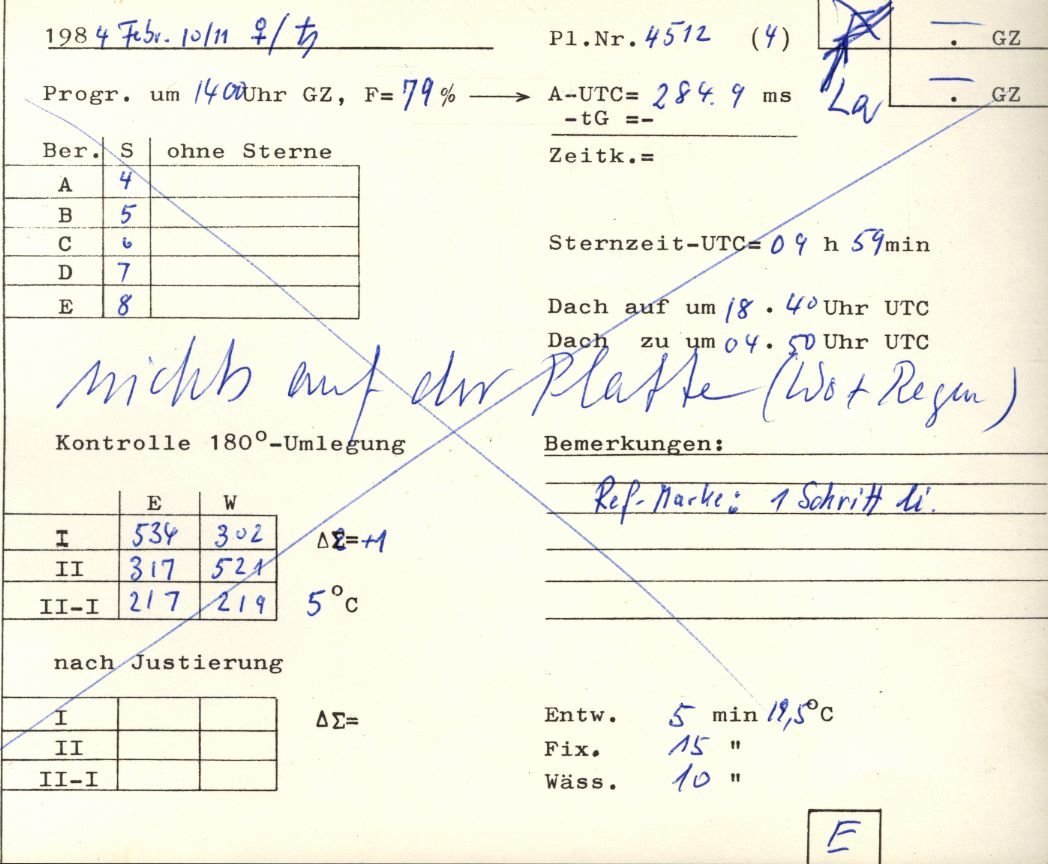 1984 Febr. 10/11 ♀/♄ Pl.Nr. 4512 (4) — . GZ
Progr. um 1400 Uhr GZ, F= 79% → A-UTC= 284.9 ms La — . GZ
-tG =-
Ber. S ohne Sterne Zeitk.=
A 4
B 5
C 6 Sternzeit-UTC= 09 h 59min
D 7
E 8 Dach auf um 18.40 Uhr UTC
Dach zu um 04.50 Uhr UTC
nichts auf der Platte (Wo + Regen)
Kontrolle 180°-Umlegung Bemerkungen:
E W Ref-Marke: 1 Schritt li.
I 534 302 ΔΣ=+1
II 317 521
II-I 217 219 5°C
nach Justierung
I ΔΣ= Entw. 5 min 19,5°C
II Fix. 15 "
II-I Wäss. 10 "
E